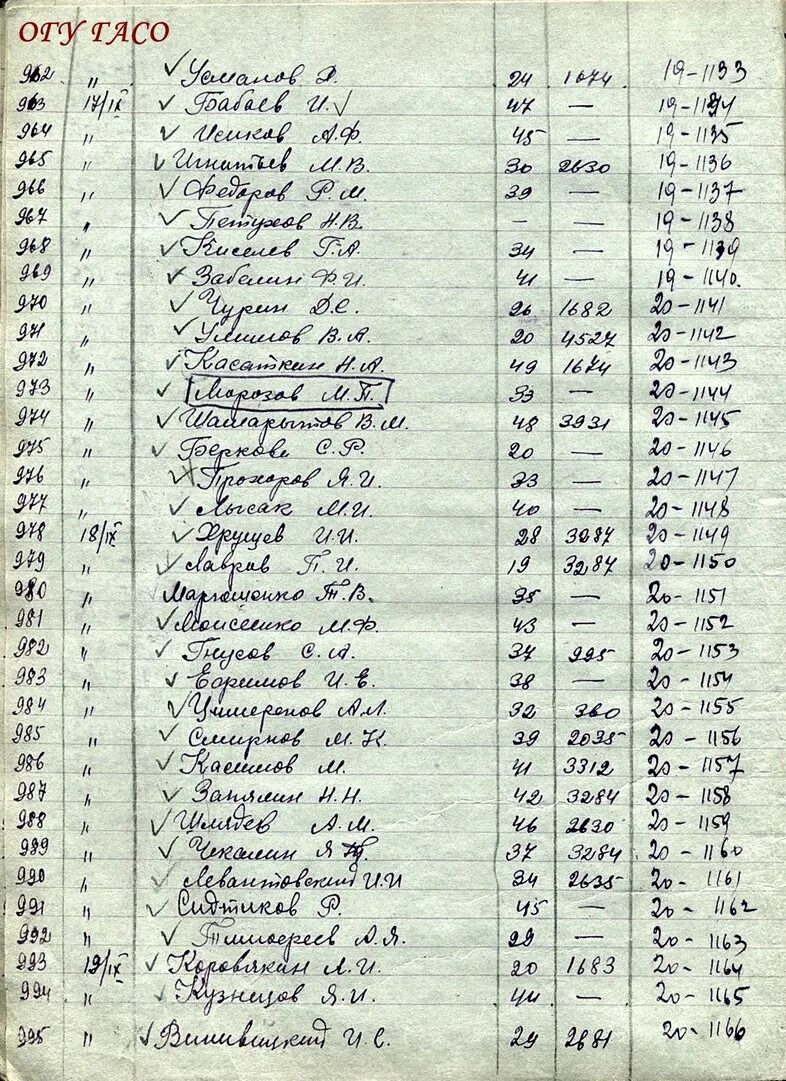 ОГУ ГАСО
962 " ✓ Усманов Р. 24 1674 19-1133
963 17/IX ✓ Бабаев И. ✓ 47 — 19-1134
964 " ✓ Исиков А.Ф. 45 — 19-1135
965 " ✓ Игнатьев М.В. 30 2630 19-1136
966 " ✓ Федоров Р.М. 39 — 19-1137
967 " ✓ Петухов Н.В. - — 19-1138
968 " ✓ Киселев Г.А. 34 — 19-1139
969 " ✓ Забелин Ф.И. 41 — 19-1140.
970 " ✓ Чурин Д.С. 26 1682 20-1141
971 " ✓ В.А. 20 4527 20-1142
972 " ✓ Касаткин Н.А. 49 1674 20-1143
973 " ✓ Морозов М.П. 33 — 20-1144
974 " ✓ В.М. 48 3931 20-1145
975 " ✓ С.Р. 20 — 20-1146
976 " ✓ Прохоров Я.И. 33 — 20-1147
977 " ✓ Лысак М.И. 40 — 20-1148
978 18/IX ✓ Хрущев И.И. 28 3287 20-1149
979 " ✓ Лавров П.И. 19 3287 20-1150
980 " Т.В. 35 — 20-1151
981 " ✓ Моисеенко М.Ф. 43 — 20-1152
982 " ✓ Гнусов С.А. 37 995 20-1153
983 " ✓ Ефимов И.Е. 38 — 20-1154
984 " ✓ 32 360 20-1155
985 " ✓ Смирнов М.К. 39 2035 20-1156
986 " ✓ Касимов М. 41 3312 20-1157
987 " ✓ Н.Н. 42 3284 20-1158
988 " ✓ А.М. 46 2630 20-1159
989 " ✓ Чекалин Я 37 3284 20-1160
990 " ✓ Левантовский И.И 34 2635 20-1161
991 " ✓ Ситдиков Р. 45 — 20-1162
992 " ✓ А.Я. 29 — 20-1163
993 19/IX ✓ Коровякин Л.И. 20 1683 20-1164
994 " ✓ Кузнецов Я.И. 44 — 20-1165
995 " ✓ И.С. 29 2681 20-1166